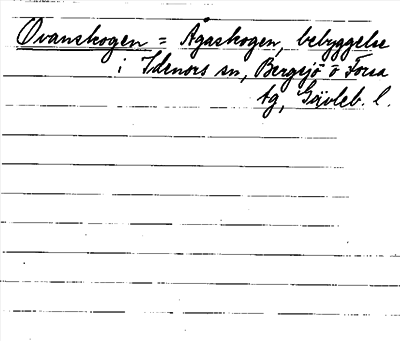 Ovanskogen = Ågaskogen, bebyggelse
i Idenors sn, Bergsjö o Forsa
tg, Gävleb. l.